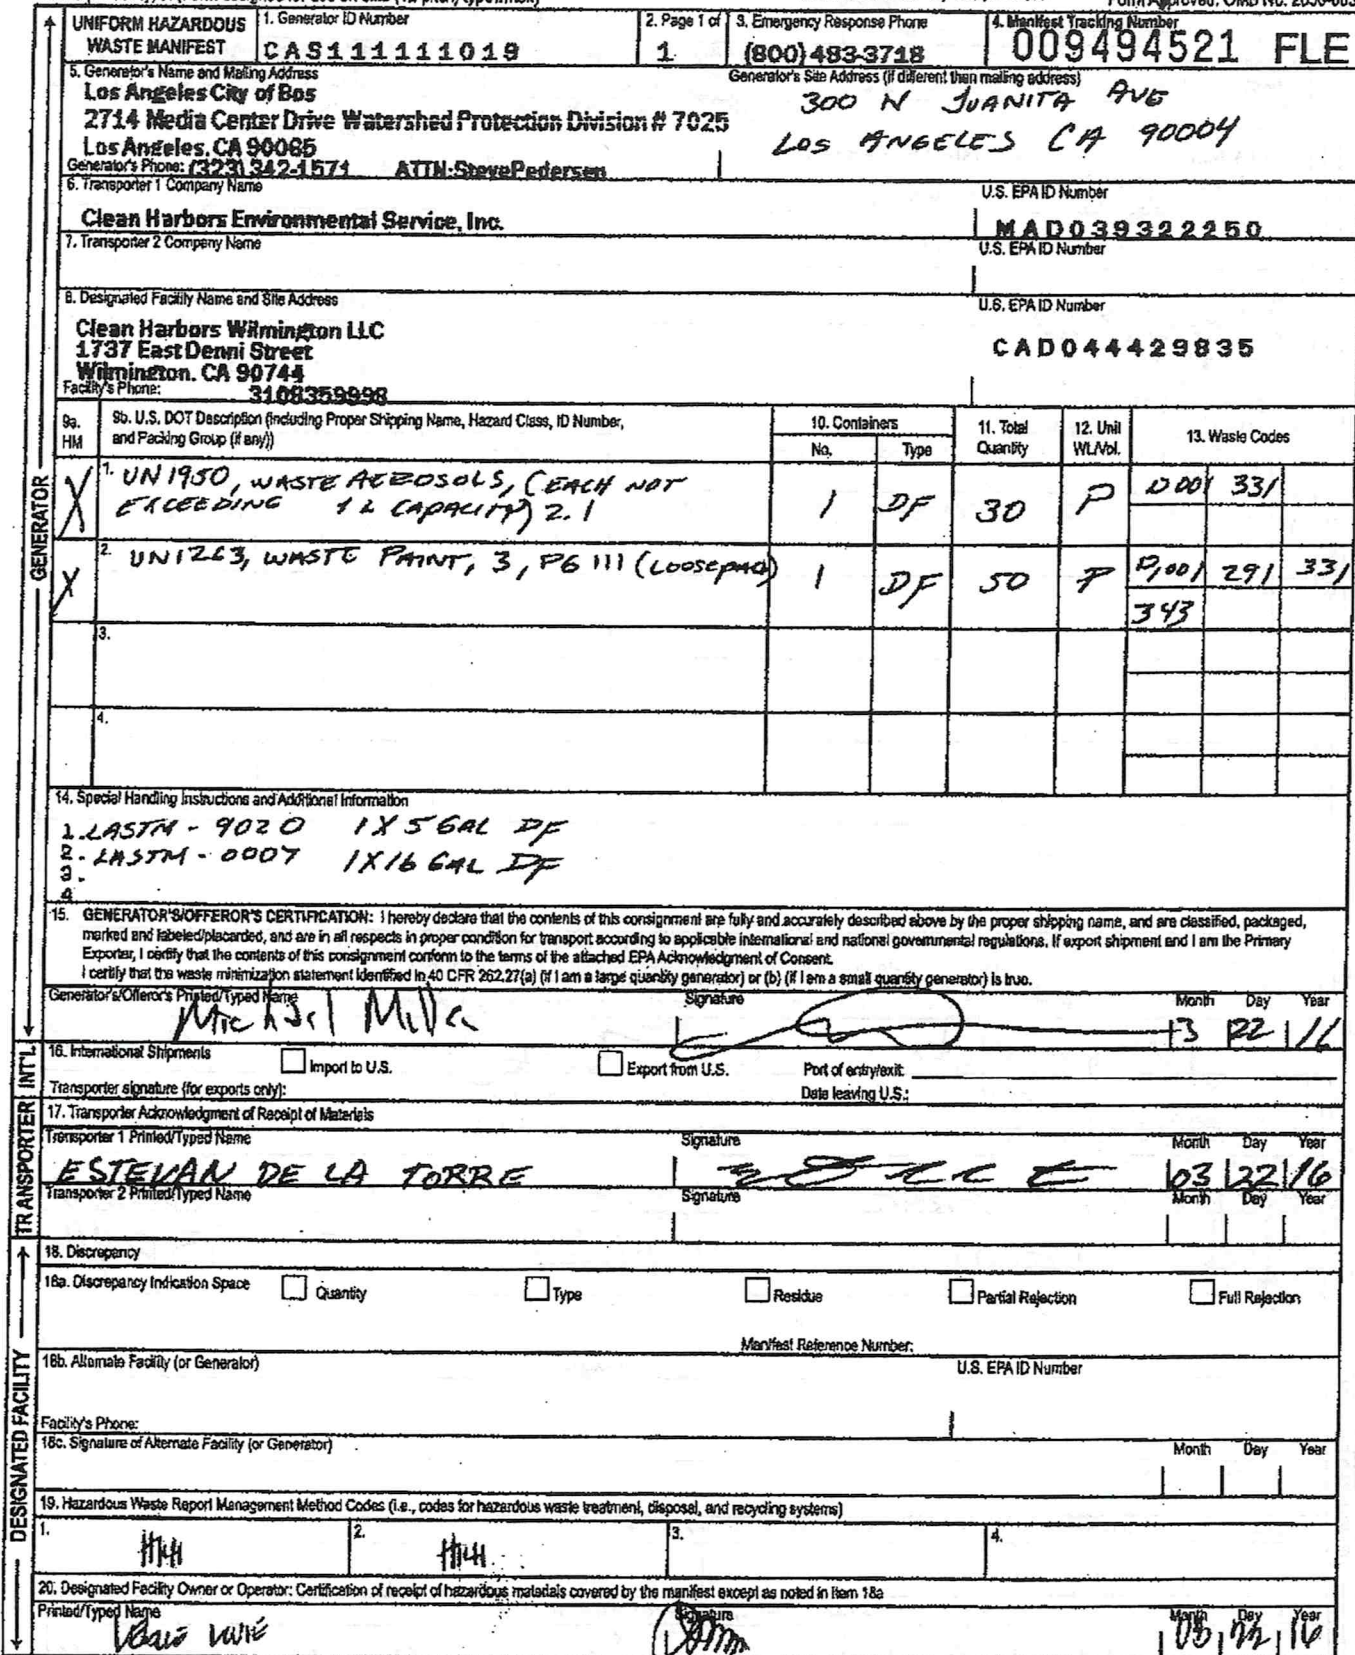 UNIFORM HAZARDOUS WASTE MANIFEST
1. Generator ID Number
CAS111111019
2. Page 1 of
1
3. Emergency Response Phone
(800) 483-3718
4. Manifest Tracking Number
009494521 FLE
5. Generator's Name and Mailing Address
Los Angeles City of Bos
2714 Media Center Drive Watershed Protection Division # 7025
Los Angeles. CA 90065
Generator's Phone: (323) 342-1571 ATTN:StevePedersen
Generator's Site Address (if different than mailing address)
300 N JUANITA AVE
LOS ANGELES CA 90004
6. Transporter 1 Company Name
Clean Harbors Environmental Service, Inc.
U.S. EPA ID Number
MAD039322250
7. Transporter 2 Company Name
U.S. EPA ID Number
8. Designated Facility Name and Site Address
Clean Harbors Wilmington LLC
1737 East Denni Street
Wilmington. CA 90744
Facility's Phone: 3108359998
U.S. EPA ID Number
CAD044429835
9a. HM
9b. U.S. DOT Description (including Proper Shipping Name, Hazard Class, ID Number, and Packing Group (if any))
10. Containers
No. Type
11. Total Quantity
12. Unit Wt./Vol.
13. Waste Codes
X 1. UN1950, WASTE AEROSOLS, (EACH NOT
EXCEEDING 1 L CAPACITY) 2.1
1 DF 30 P D001 331
X 2. UN1263, WASTE PAINT, 3, PG III (LOOSEPACK)
1 DF 50 P D001 291 331
343
3.
4.
14. Special Handling Instructions and Additional Information
1. LASTM - 9020 1X5 GAL DF
2. LASTM - 0007 1X16 GAL DF
3.
4
15. GENERATOR'S/OFFEROR'S CERTIFICATION: I hereby declare that the contents of this consignment are fully and accurately described above by the proper shipping name, and are classified, packaged,
marked and labeled/placarded, and are in all respects in proper condition for transport according to applicable international and national governmental regulations. If export shipment and I am the Primary
Exporter, I certify that the contents of this consignment conform to the terms of the attached EPA Acknowledgment of Consent.
I certify that the waste minimization statement identified in 40 CFR 262.27(a) (if I am a large quantity generator) or (b) (if I am a small quantity generator) is true.
Generator's/Offeror's Printed/Typed Name Signature Month Day Year
3 22 16
16. International Shipments
Import to U.S. Export from U.S. Port of entry/exit:
Transporter signature (for exports only): Date leaving U.S.:
17. Transporter Acknowledgment of Receipt of Materials
Transporter 1 Printed/Typed Name Signature Month Day Year
ESTEVAN DE LA TORRE 03 22 16
Transporter 2 Printed/Typed Name Signature Month Day Year
18. Discrepancy
18a. Discrepancy Indication Space Quantity Type Residue Partial Rejection Full Rejection
Manifest Reference Number:
18b. Alternate Facility (or Generator) U.S. EPA ID Number
Facility's Phone:
18c. Signature of Alternate Facility (or Generator) Month Day Year
19. Hazardous Waste Report Management Method Codes (i.e., codes for hazardous waste treatment, disposal, and recycling systems)
1. H141 2. H141 3. 4.
20. Designated Facility Owner or Operator: Certification of receipt of hazardous materials covered by the manifest except as noted in Item 18a
Printed/Typed Name Signature Month Day Year
03 22 16
GENERATOR
INT'L
TRANSPORTER
DESIGNATED FACILITY